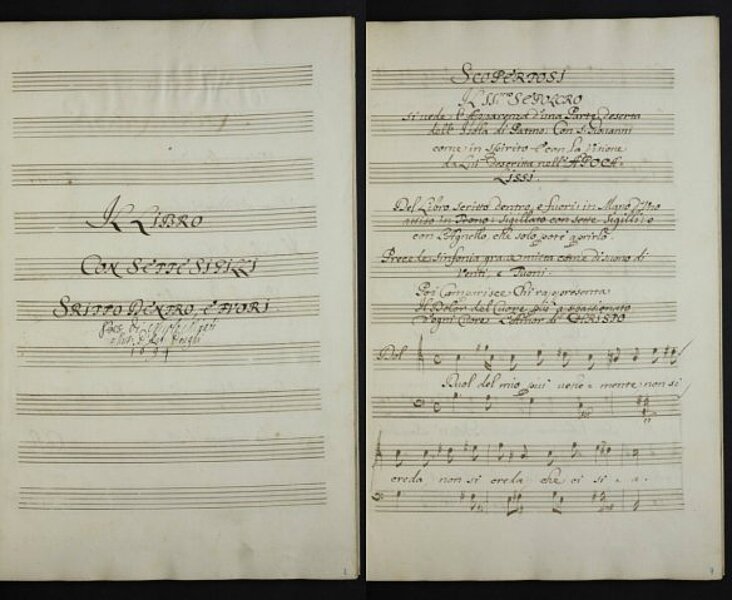 IL LIBRO
CON SETTE SIGILLI
SRITTO DENTRO, E FUORI.
1694
SCOPERTOSI
IL SS.mo SEPOLCRO
si vede l'Apparenza d'una Parte deserta
dell'Isola di Patmo. Con S. Giovanni
come in Spirito e con la Visione
da Lui descritta nell'APOCA-
LISSI.
Del Libro scritto dentro, e fuori: in Mano d'Uno
assiso in Trono: sigillato con sette Sigilli: e
con l'Agnello, che solo potè aprirlo.
Precede Sinfonia grave mista come di suono di
Venti, e Tuoni.
Poi Comparisce Chi rappresenta
Il Dolor del Cuore più appassionato
d'ogni Cuore. L'Amor di CHRISTO
Dol
Duol del mio più vehe-mente non si
creda non si creda che ci si-a.